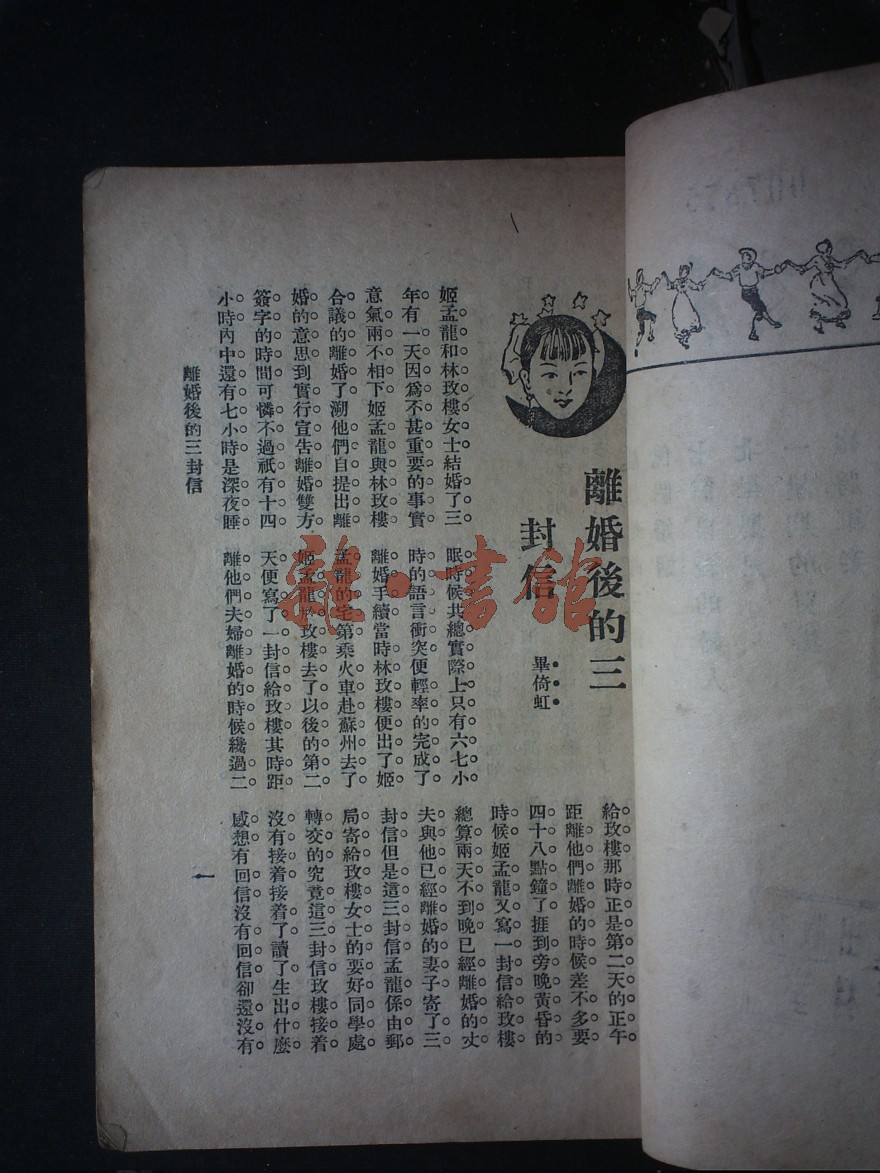 離婚後的三
封信
畢倚虹
姬孟龍和林玫樓女士結婚了三
年有一天因爲不甚重要的事實
意氣兩不相下姬孟龍與林玫樓
合議的離婚了溯他們自提出離
婚的意思到實行宣告離婚雙方
簽字的時間可憐不過祇有十四
小時內中還有七小時是深夜睡
眠時候共總實際上只有六七小
時的語言衝突便輕率的完成了
離婚手續當時林玫樓便出了姬
孟龍的宅第乘火車赴蘇州去了
姬孟龍於玫樓去了以後的第二
天便寫了一封信給玫樓其時距
離他們夫婦離婚的時候纔過二
給玫樓那時正是第二天的正午
距離他們離婚的時候差不多要
四十八點鐘了捱到旁晚黃昏的
時候姬孟龍又寫一封信給玫樓
總算兩天不到晚已經離婚的丈
夫與他已經離婚的妻子寄了三
封信但是這三封信孟龍係由郵
局寄給玫樓女士的要好同學處
轉交的究竟這三封信玫樓接着
沒有接着接着了讀了生出什麼
感想有回信沒有回信卻還沒有
離婚後的三封信
一
雜·書館